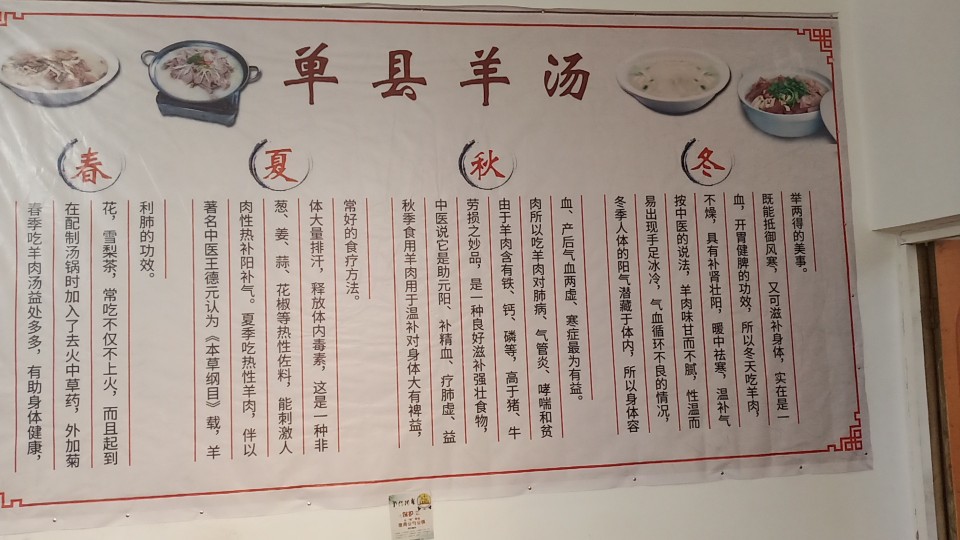 单县羊汤
春
春季吃羊肉汤益处多多，有助身体健康，
在配制汤锅时加入了去火中草药，外加菊
花，雪梨茶，常吃不仅不上火，而且起到
利肺的功效。
夏
著名中医王德元认为《本草纲目》载，羊
肉性热补阳补气。夏季吃热性羊肉，伴以
葱、姜、蒜、花椒等热性佐料，能刺激人
体大量排汗，释放体内毒素，这是一种非
常好的食疗方法。
秋
秋季食用羊肉用于温补对身体大有裨益，
中医说它是助元阳、补精血、疗肺虚、益
劳损之妙品，是一种良好滋补强壮食物，
由于羊肉含有铁、钙、磷等，高于猪、牛
肉所以吃羊肉对肺病、气管炎、哮喘和贫
血、产后气血两虚、寒症最为有益。
冬
冬季人体的阳气潜藏于体内，所以身体容
易出现手足冰冷，气血循环不良的情况，
按中医的说法，羊肉味甘而不腻，性温而
不燥，具有补肾壮阳，暖中祛寒，温补气
血，开胃健脾的功效，所以冬天吃羊肉，
既能抵御风寒，又可滋补身体，实在是一
举两得的美事。